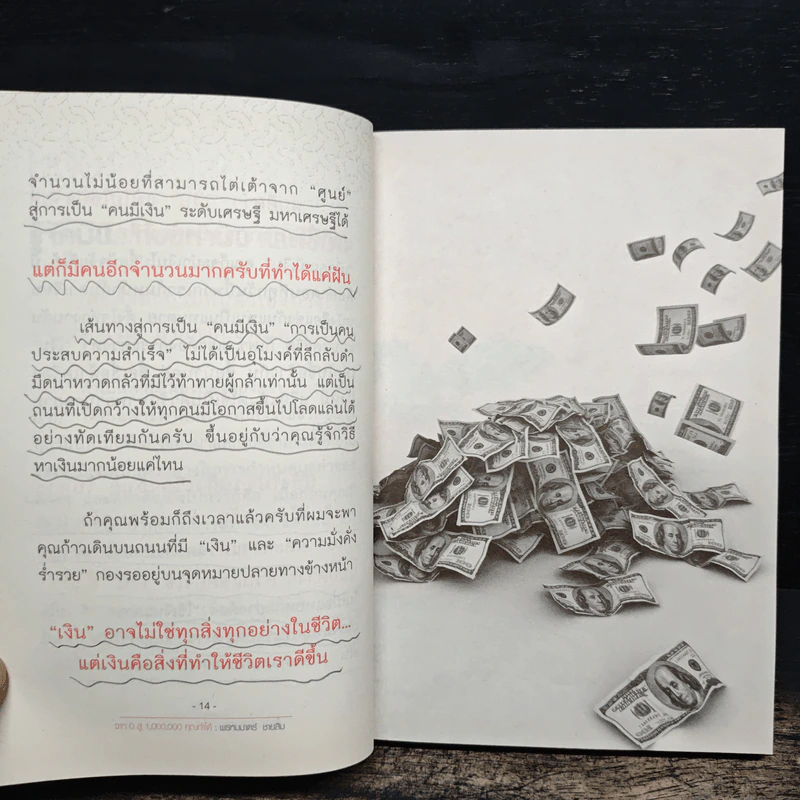 จำนวนไม่น้อยที่สามารถไต่เต้าจาก “ศูนย์”
สู่การเป็น “คนมีเงิน” ระดับเศรษฐี มหาเศรษฐีได้
แต่ก็มีคนอีกจำนวนมากครับที่ทำได้แค่ฝัน
เส้นทางสู่การเป็น “คนมีเงิน” “การเป็นคน
ประสบความสำเร็จ” ไม่ได้เป็นอุโมงค์ที่ลึกลับดำ
มืดน่าหวาดกลัวที่มีไว้ท้าทายผู้กล้าเท่านั้น แต่เป็น
ถนนที่เปิดกว้างให้ทุกคนมีโอกาสขึ้นไปโลดแล่นได้
อย่างทัดเทียมกันครับ ขึ้นอยู่กับว่าคุณรู้จักวิธี
หาเงินมากน้อยแค่ไหน
ถ้าคุณพร้อมก็ถึงเวลาแล้วครับที่ผมจะพา
คุณก้าวเดินบนถนนที่มี “เงิน” และ “ความมั่งคั่ง
ร่ำรวย” กองรออยู่บนจุดหมายปลายทางข้างหน้า
“เงิน” อาจไม่ใช่ทุกสิ่งทุกอย่างในชีวิต...
แต่เงินคือสิ่งที่ทำให้ชีวิตเราดีขึ้น
- 14 -
คุณทำได้ :